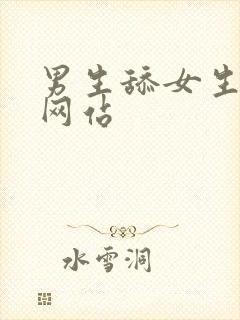 男生舔女生
网站
水雪洞